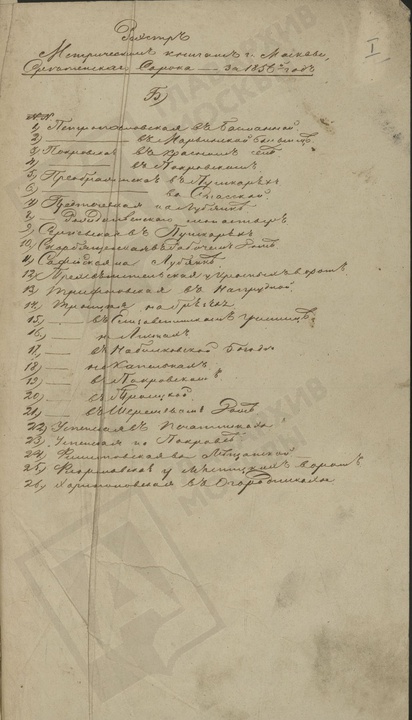 Реэстръ
Метрическимъ книгамъ г. Москвы,
Срѣтенскаго Сорока — за 1856й годъ
I
Б)
№№
1) Петропавловская въ Басманной
2) — въ Марьинской больницѣ
3) Покровская въ Красномъ селѣ
4) — въ Покровскомъ
5) Преображенская въ Пушкаряхъ
6) — въ Спасской
7) Предтечева на Лубянкѣ
8) — Рождественскаго монастыря
9) Сергіевская въ Пушкаряхъ
10) Скорбященская въ Рабочемъ Домѣ
11) Софійская на Лубянкѣ
12) у Красныхъ воротъ
13) Трифоновская въ Напрудной
14) Троицкая на Грязяхъ
15) — въ Елисаветинскомъ училищѣ
16) — на Листахъ
17) — въ Набилковской богад.
18) — на Капелькахъ
19) — въ Покровскомъ
20) — въ Троицкой
21) — въ Шереметев. Домѣ
22) Успенская въ Печатникахъ
23) Успенская на Покровкѣ
24) Филипповская въ Мѣщанской
25) Флоровская у Мясницкихъ воротъ
26) Харитоновская въ Огородникахъ